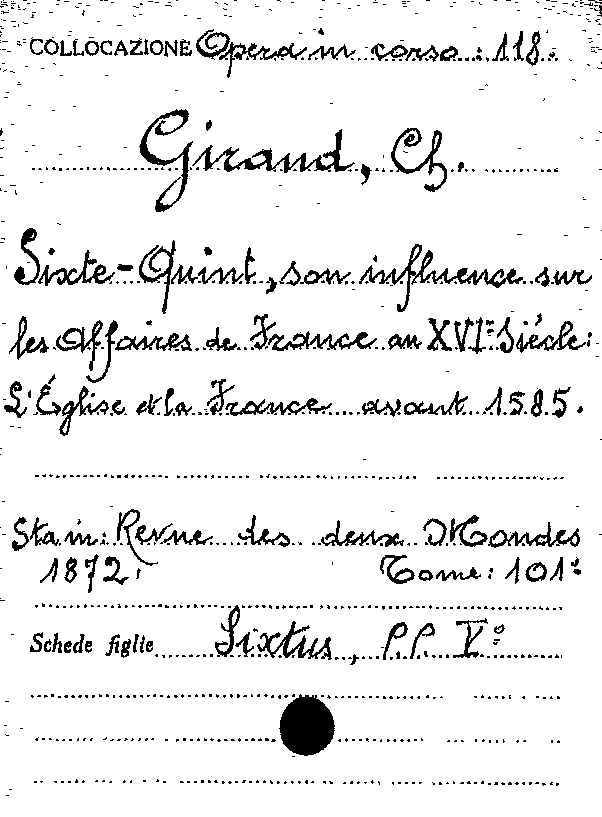 COLLOCAZIONE Opera in corso : 118.
Giraud, Ch.
Sixte-Quint, son influence sur
les Affaires de France au XVIᵉ Siécle:
L'Église et la France avant 1585.
Sta in: Revue des deux Mondes
1872. Tome: 101º
Schede figlie Sixtus, P.P. Vº